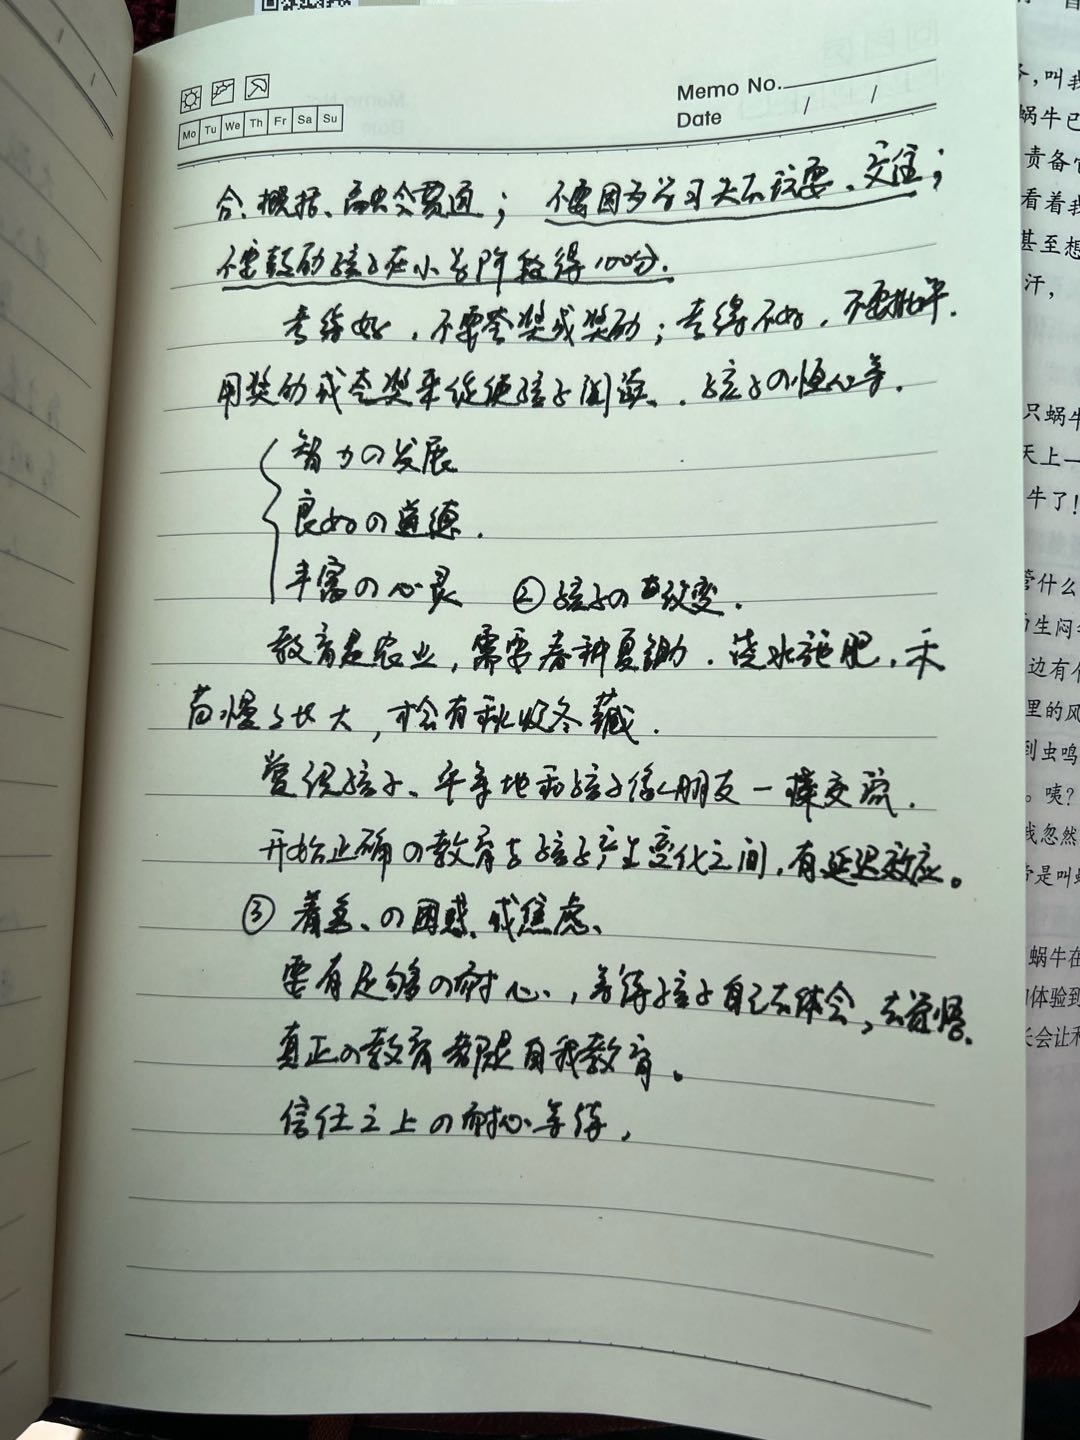 Memo No.
Date / /
Mo Tu We Th Fr Sa Su
合、概括、融会贯通；不要因为学习失去玩耍、交往；
不要鼓励孩子在小学阶段得100分.
考得好，不要夸奖或奖励；考得不好，不要批评.
用奖励或夸奖来促使孩子阅读、. 孩子の恒心等.
智力の发展
良好の道德.
丰富の心灵 ②孩子の改变.
教育是农业，需要春种夏锄. 浇水施肥，禾
苗慢慢长大，才会有秋收冬藏.
尊重孩子、平等地和孩子像朋友一样交流.
开始正确の教育与孩子产生变化之间，有延迟效应。
③ 着急、の困惑、或焦虑、
要有足够の耐心、，等待孩子自己去体会，去觉悟.
真正の教育都是自我教育。
信任之上の耐心等待，
，叫我
蜗牛已
责备它
看着我
甚至想
汗，
只蜗牛
天上一
牛了！
管什么
生闷
边有
里的风
到虫鸣
。咦？
我忽然
是叫
蜗牛在
体验到
长会让